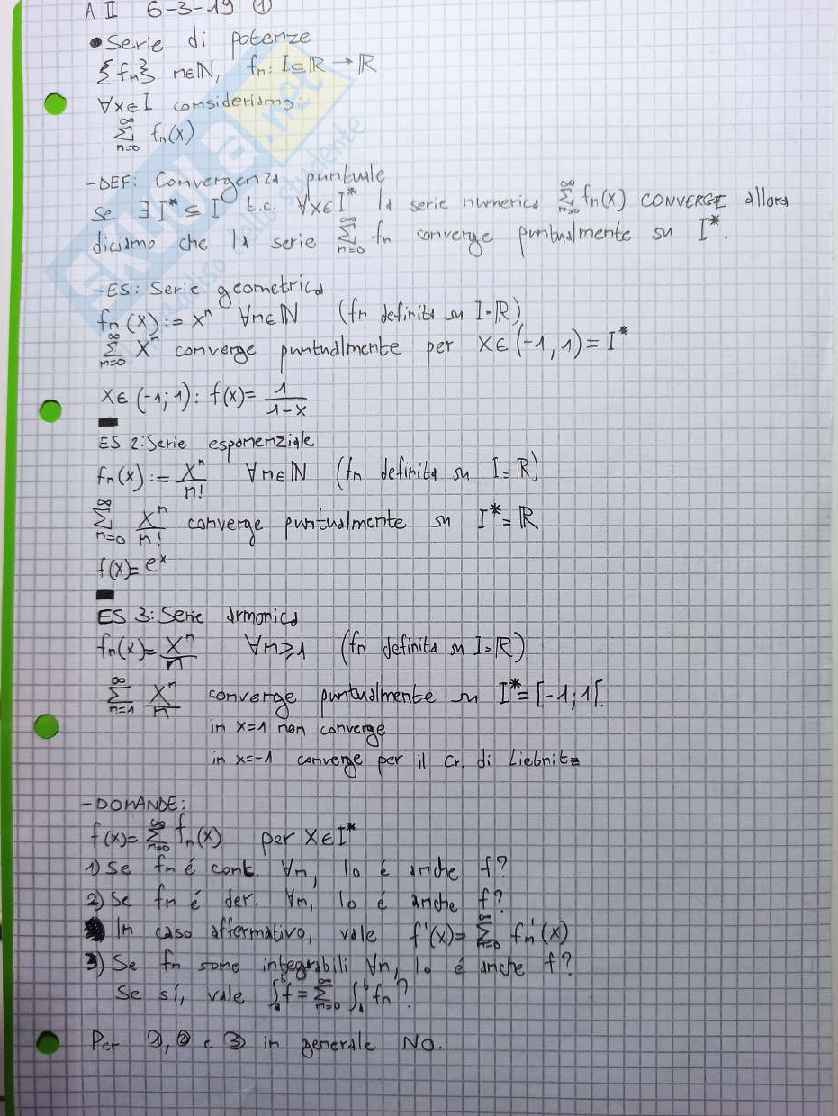 A II 6-3-19 ①
• Serie di potenze
{fn} n∈ℕ, fn: I⊆ℝ→ℝ
∀x∈I consideriamo
∑_{n=0}^∞ fn(x)
-DEF: Convergenza puntuale
Se ∃ I* ⊆ I t.c. ∀x∈I* la serie numerica ∑_{n=0}^∞ fn(x) CONVERGE allora
diciamo che la serie ∑_{n=0}^∞ fn converge puntualmente su I*.
-ES: Serie geometrica
fn(x):= x^n ∀n∈ℕ (fn definita su I=ℝ)
∑_{n=0}^∞ x^n converge puntualmente per x∈(-1,1)=I*
x∈(-1;1): f(x)= 1/(1-x)
ES 2: Serie esponenziale
fn(x):= x^n/n! ∀n∈ℕ (fn definita su I=ℝ)
∑_{n=0}^∞ x^n/n! converge puntualmente su I*=ℝ
f(x)=e^x
ES 3: Serie armonica
fn(x)= x^n/n ∀n≥1 (fn definita su I=ℝ)
∑_{n=1}^∞ x^n/n converge puntualmente su I*=[-1;1[.
in x=1 non converge
in x=-1 converge per il Cr. di Liebnitz
-DOMANDE:
f(x)=∑_{n=0}^∞ fn(x) per x∈I*
1) Se fn é cont. ∀n, lo é anche f?
2) Se fn é der. ∀n, lo é anche f?
In caso affermativo, vale f'(x)=∑_{n=0}^∞ fn'(x)
3) Se fn sono integrabili ∀n, lo é anche f?
Se sí, vale ∫_a^b f=∑_{n=0}^∞ ∫_a^b fn?
Per ①, ② e ③ in generale NO.